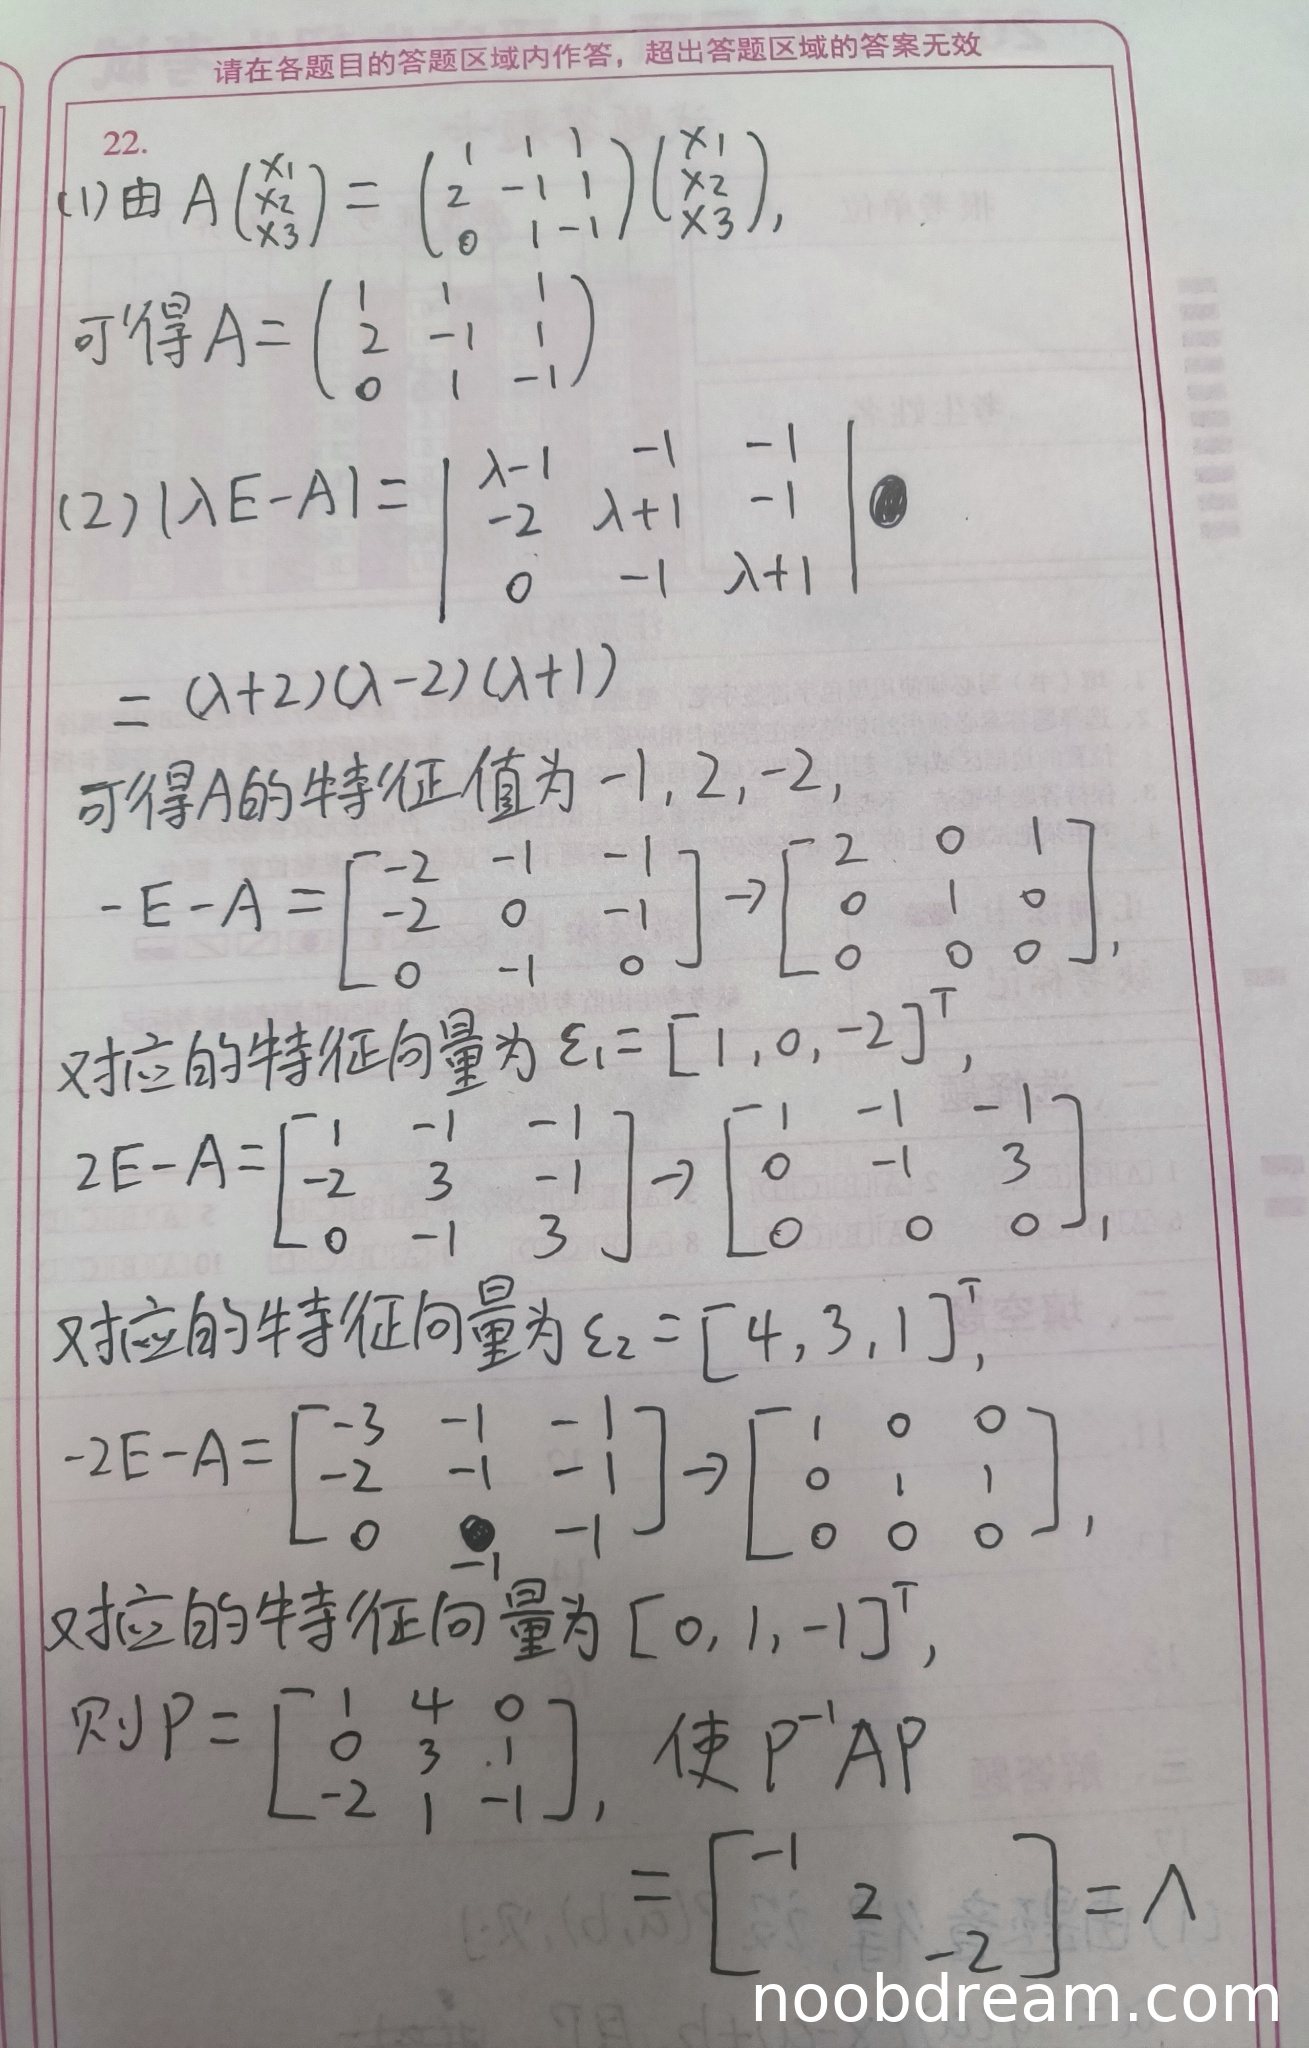 请在各题目的答题区域内作答，超出答题区域的答案无效
22.
(1)由 A(x1 x2 x3) = (1 1 1; 2 -1 1; 0 1 -1)(x1 x2 x3),
可得A = (1 1 1; 2 -1 1; 0 1 -1)
(2)|λE-A| = |λ-1 -1 -1; -2 λ+1 -1; 0 -1 λ+1|
= (λ+2)(λ-2)(λ+1)
可得A的特征值为-1,2,-2,
-E-A = [-2 -1 -1; -2 0 -1; 0 -1 0] → [2 0 1; 0 1 0; 0 0 0],
对应的特征向量为 ε1 = [1,0,-2]^T,
2E-A = [1 -1 -1; -2 3 -1; 0 -1 3] → [1 -1 -1; 0 -1 3; 0 0 0],
对应的特征向量为 ε2 = [4,3,1]^T,
-2E-A = [-3 -1 -1; -2 -1 -1; 0 -1 -1] → [1 0 0; 0 1 1; 0 0 0],
对应的特征向量为 [0,1,-1]^T,
则P = [1 4 0; 0 3 1; -2 1 -1], 使 P^-1AP
= [-1 2 -2] = Λ
noobdream.com